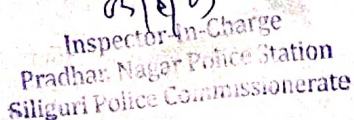 Inspector-in-Charge
Pradhan Nagar Police Station
Siliguri Police Commissionerate